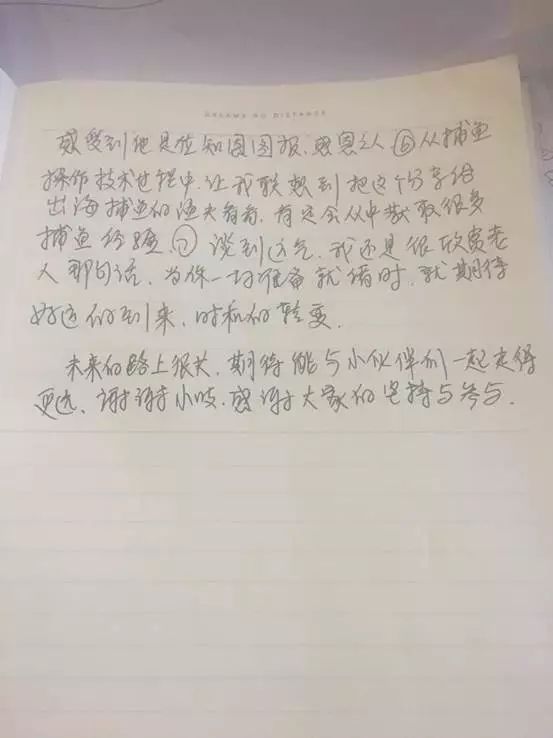 DREAMS NO DISTANCE
感受到他是位知恩图报、感恩之人⑥从捕鱼
操作技术过程中,让我联想到把这个分享给
出海捕鱼的渔夫看看,肯定会从中获取很多
捕鱼经验.⑦谈到运气,我还是很欣赏老
人那句话,当你一切准备就绪时,就期待
好运的到来,时机的转变.
未来的路上很长,期待能与小伙伴们一起走得
更远、谢谢小吱.感谢大家的坚持与参与.